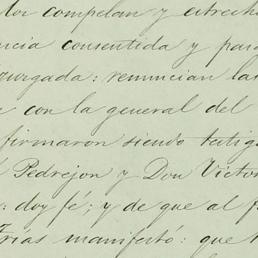 los compelan y estrech
ncia consentida y pas
uzgada: renuncian las
con la general del
firmaron siendo testig
Pedrejon y Don Victor
: doy fé; y de que al f
Frías manifestó: que